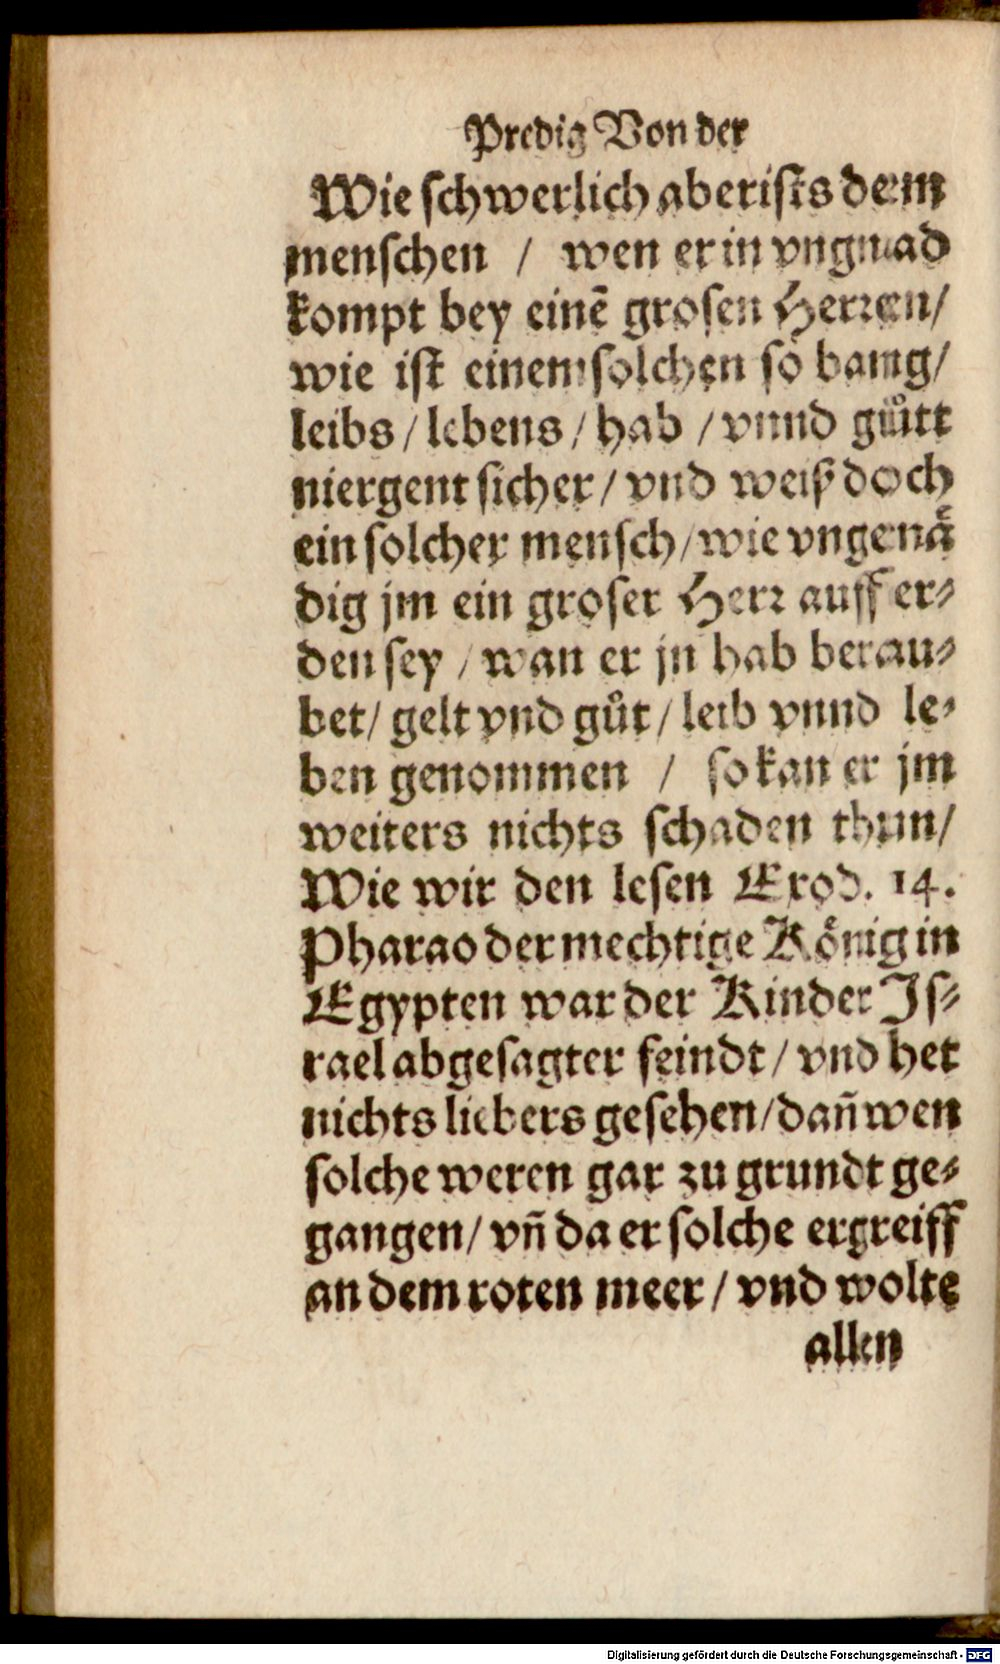 Predig Von der
Wie schwerlich aber ists dem
menschen / wen er in vngnad
kompt bey einẽ grosen Herren/
wie ist einem solchen so bang/
leibs / lebens / hab / vnnd gůtt
niergent sicher / vnd weiß doch
ein solcher mensch / wie vngenaͤ
dig jm ein groser Herr auff er⸗
den sey / wan er jn hab berau⸗
bet / gelt vnd gůt / leib vnnd le⸗
ben genommen / so kan er jm
weiters nichts schaden thun/
Wie wir den lesen Exod. 14.
Pharao der mechtige Koͤnig in
Egypten war der Kinder Js⸗
rael abgesagter feindt / vnd het
nichts liebers gesehen / dañ wen
solche weren gar zu grundt ge⸗
gangen / vñ da er solche ergreiff
an dem roten meer / vnd wolte
allen
Digitalisierung gefördert durch die Deutsche Forschungsgemeinschaft - DFG